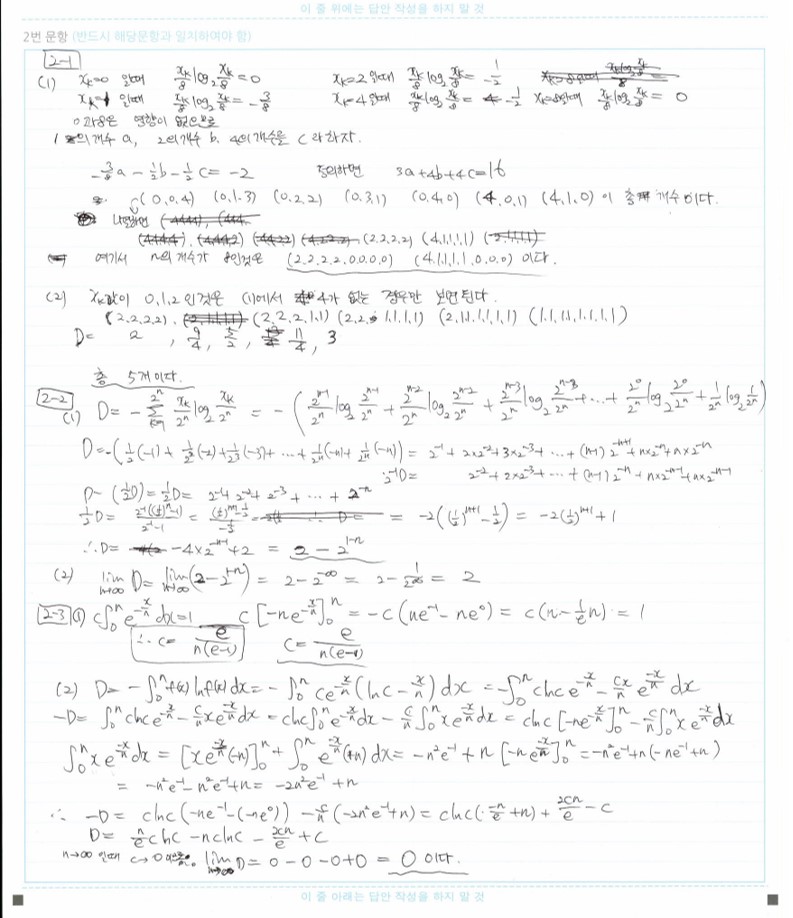 이 줄 위에는 답안 작성을 하지 말 것
2번 문항 (반드시 해당문항과 일치하여야 함)
2-1
(1) x_k=0 일때 x_k/8 log₂ x_k/8 = 0 x_k=2 일때 x_k/8 log₂ x_k/8 = -1/2
x_k=1 일때 x_k/8 log₂ x_k/8 = -3/8 x_k=4 일때 x_k/8 log₂ x_k/8 = -1/2 x_k=8일때 x_k/8 log₂ x_k/8 = 0
영향이 없으므로
1의개수 a, 2의개수 b. 4의개수를 c라하자.
-3/8 a - 1/2 b - 1/2 c = -2 정리하면 3a+4b+4c=16
(0,0,4) (0,1,3) (0,2,2) (0,3,1) (0,4,0) (4,0,1) (4,1,0) 이 총 개수이다.
나열하면
(2,2,2,2) (4,1,1,1,1)
여기서 n의개수가 8인것은 (2,2,2,2,0,0,0,0) (4,1,1,1,1,0,0,0) 이다.
(2) x_k값이 0,1,2 인것은 (1)에서 4가 없는 경우만 보면된다.
(2,2,2,2), (2,2,2,1,1) (2,2,1,1,1,1) (2,1,1,1,1,1,1) (1,1,1,1,1,1,1,1)
D= 2, 9/4, 5/2, 11/4, 3
총 5개이다.
2-2
(1) D = -Σ x_k/2ⁿ log₂ x_k/2ⁿ = -(2ⁿ⁻¹/2ⁿ log₂ 2ⁿ⁻¹/2ⁿ + 2ⁿ⁻²/2ⁿ log₂ 2ⁿ⁻²/2ⁿ + 2ⁿ⁻³/2ⁿ log₂ 2ⁿ⁻³/2ⁿ + ... + 2⁰/2ⁿ log₂ 2⁰/2ⁿ + 1/2ⁿ log₂ 1/2ⁿ)
D = -(1/2(-1) + 1/2²(-2) + 1/2³(-3) + ... + 1/2ⁿ(-n) + 1/2ⁿ(-n)) = 2⁻¹+2×2⁻²+3×2⁻³+ ... +(n-1)2⁻ⁿ⁺¹+n×2⁻ⁿ+n×2⁻ⁿ
2⁻¹D = 2⁻²+2×2⁻³+ ... +(n-1)2⁻ⁿ+n×2⁻ⁿ⁻¹+n×2⁻ⁿ⁻¹
D-(1/2 D) = 1/2 D = 2⁻¹+2⁻²+2⁻³+ ... + 2⁻ⁿ
1/2 D = 2⁻¹((1/2)ⁿ-1)/(2⁻¹-1) = ((1/2)ⁿ⁺¹-1/2)/(-1/2) = -2((1/2)ⁿ⁺¹-1/2) = -2(1/2)ⁿ⁺¹+1
∴D = -4×2⁻ⁿ⁻¹+2 = 2-2¹⁻ⁿ
(2) lim n→∞ D = lim n→∞ (2-2¹⁻ⁿ) = 2-2⁻∞ = 2-1/2∞ = 2
2-3 (1) c∫₀ⁿ e^(-x/n) dx=1 c[-ne^(-x/n)]₀ⁿ = -c(ne⁻¹-ne⁰) = c(n-1/e n) = 1
∴ c= e/n(e-1) c= e/n(e-1)
(2) D = -∫₀ⁿ f(x) ln f(x) dx = -∫₀ⁿ ce^(-x/n)(lnc - x/n) dx = -∫₀ⁿ clnc e^(-x/n) - cx/n e^(-x/n) dx
-D = ∫₀ⁿ clnc e^(-x/n) - c/n x e^(-x/n) dx = clnc∫₀ⁿ e^(-x/n) dx - c/n ∫₀ⁿ x e^(-x/n) dx = clnc[-ne^(-x/n)]₀ⁿ - c/n ∫₀ⁿ x e^(-x/n) dx
∫₀ⁿ x e^(-x/n) dx = [x e^(-x/n)(-n)]₀ⁿ + ∫₀ⁿ e^(-x/n)(+n) dx = -n²e⁻¹ + n[-ne^(-x/n)]₀ⁿ = -n²e⁻¹+n(-ne⁻¹+n)
= -n²e⁻¹-n²e⁻¹+n = -2n²e⁻¹+n
∴ -D = clnc(-ne⁻¹-(-ne⁰)) - c/n(-2n²e⁻¹+n) = clnc(-n/e+n) + 2cn/e - c
D = n/e clnc - nclnc - 2cn/e + c
n→∞ 일때 c→0 lim n→∞ D = 0-0-0+0 = 0 이다.
이 줄 아래는 답안 작성을 하지 말 것